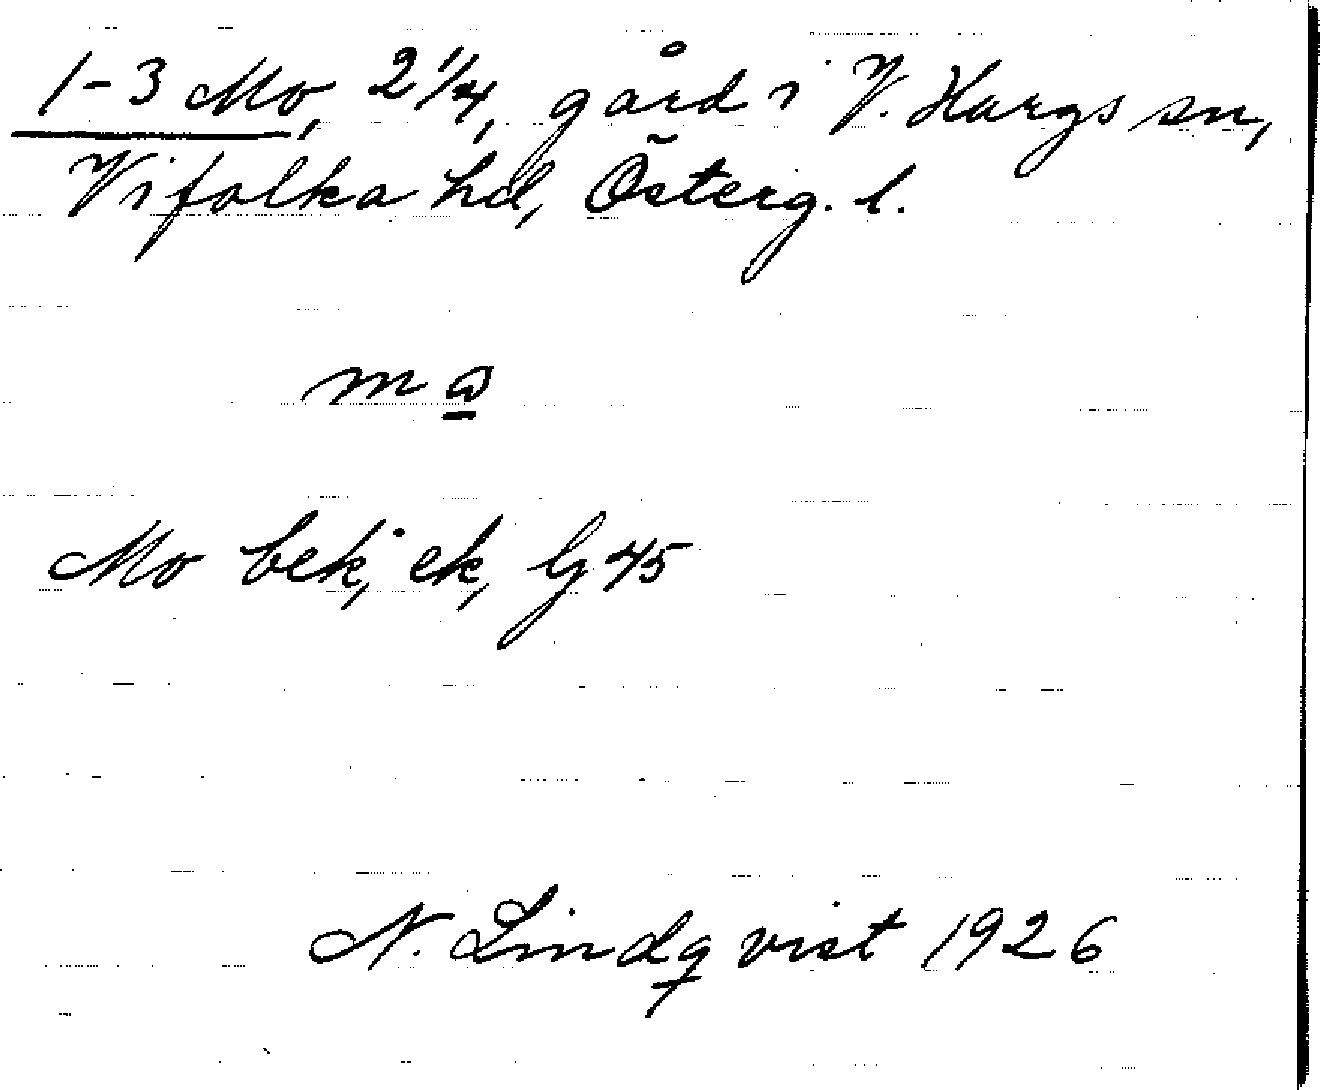 1-3 Mo, 2 1/4, gård i V. Hargs sn,
Vifolka hd, Österg. l.
m
Mo bek, ek, Gg 45
N. Lindqvist 1926